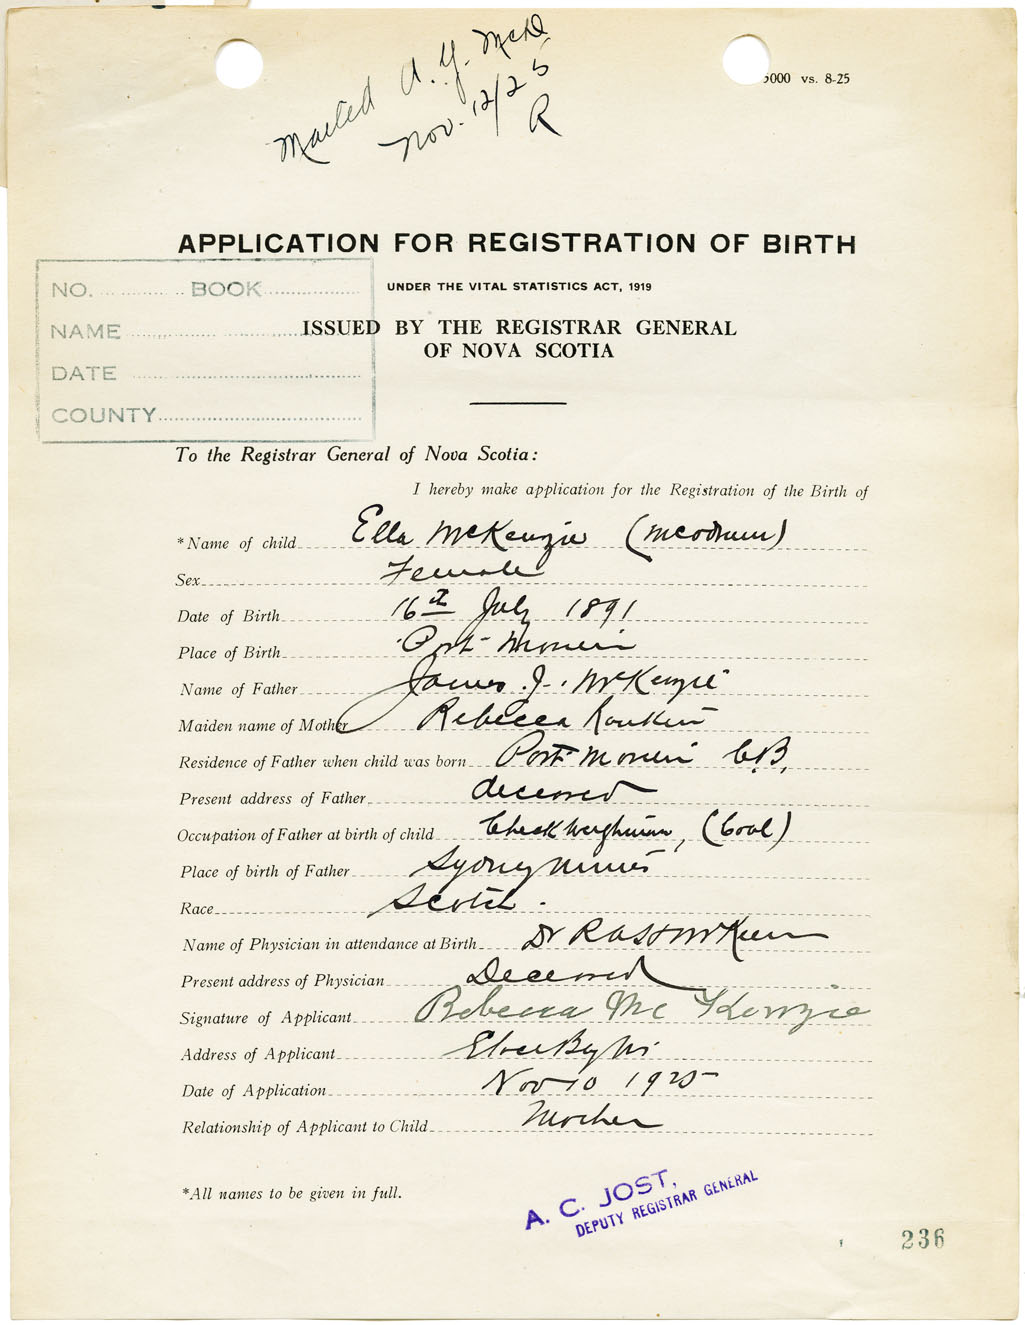 Mailed A. Y. McD
Nov. 12/25
R
5000 vs. 8-25
APPLICATION FOR REGISTRATION OF BIRTH
UNDER THE VITAL STATISTICS ACT, 1919
ISSUED BY THE REGISTRAR GENERAL
OF NOVA SCOTIA
NO. BOOK
NAME
DATE
COUNTY
To the Registrar General of Nova Scotia:
I hereby make application for the Registration of the Birth of
*Name of child Ella McKenzie (McOdrum)
Sex Female
Date of Birth 16th July 1891
Place of Birth Port Morien
Name of Father James J. McKenzie
Maiden name of Mother Rebecca Rankin
Residence of Father when child was born Port Morien C.B.
Present address of Father deceased
Occupation of Father at birth of child Check weighman, (Coal)
Place of birth of Father Sydney Mines
Race Scotch.
Name of Physician in attendance at Birth Dr
Present address of Physician Deceased
Signature of Applicant Rebecca McKenzie
Address of Applicant
Date of Application Nov 10 1925
Relationship of Applicant to Child Mother
*All names to be given in full.
A. C. JOST,
DEPUTY REGISTRAR GENERAL
236